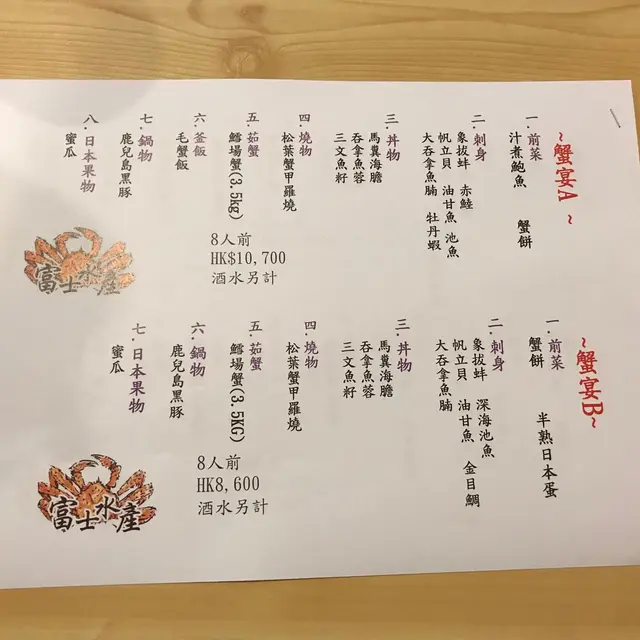 ~蟹宴A ~
一.前菜
汁煮鮑魚 蟹餅
二.刺身
象拔蚌 赤鯥
帆立貝 油甘魚 池魚
大吞拿魚腩 牡丹蝦
三.丼物
馬糞海膽
吞拿魚蓉
三文魚籽
四.燒物
松葉蟹甲羅燒
五.茹蟹
鱈場蟹(3.5kg)
六.釜飯
毛蟹飯
七.鍋物
鹿兒島黑豚
八.日本果物
蜜瓜
8人前
HK$10,700
酒水另計
富士水產
~蟹宴B~
一.前菜
蟹餅 半熟日本蛋
二.刺身
象拔蚌 深海池魚
帆立貝 油甘魚 金目鯛
大吞拿魚腩
三.丼物
馬糞海膽
吞拿魚蓉
三文魚籽
四.燒物
松葉蟹甲羅燒
五.茹蟹
鱈場蟹(3.5KG)
六.鍋物
鹿兒島黑豚
七.日本果物
蜜瓜
8人前
HK8,600
酒水另計
富士水產